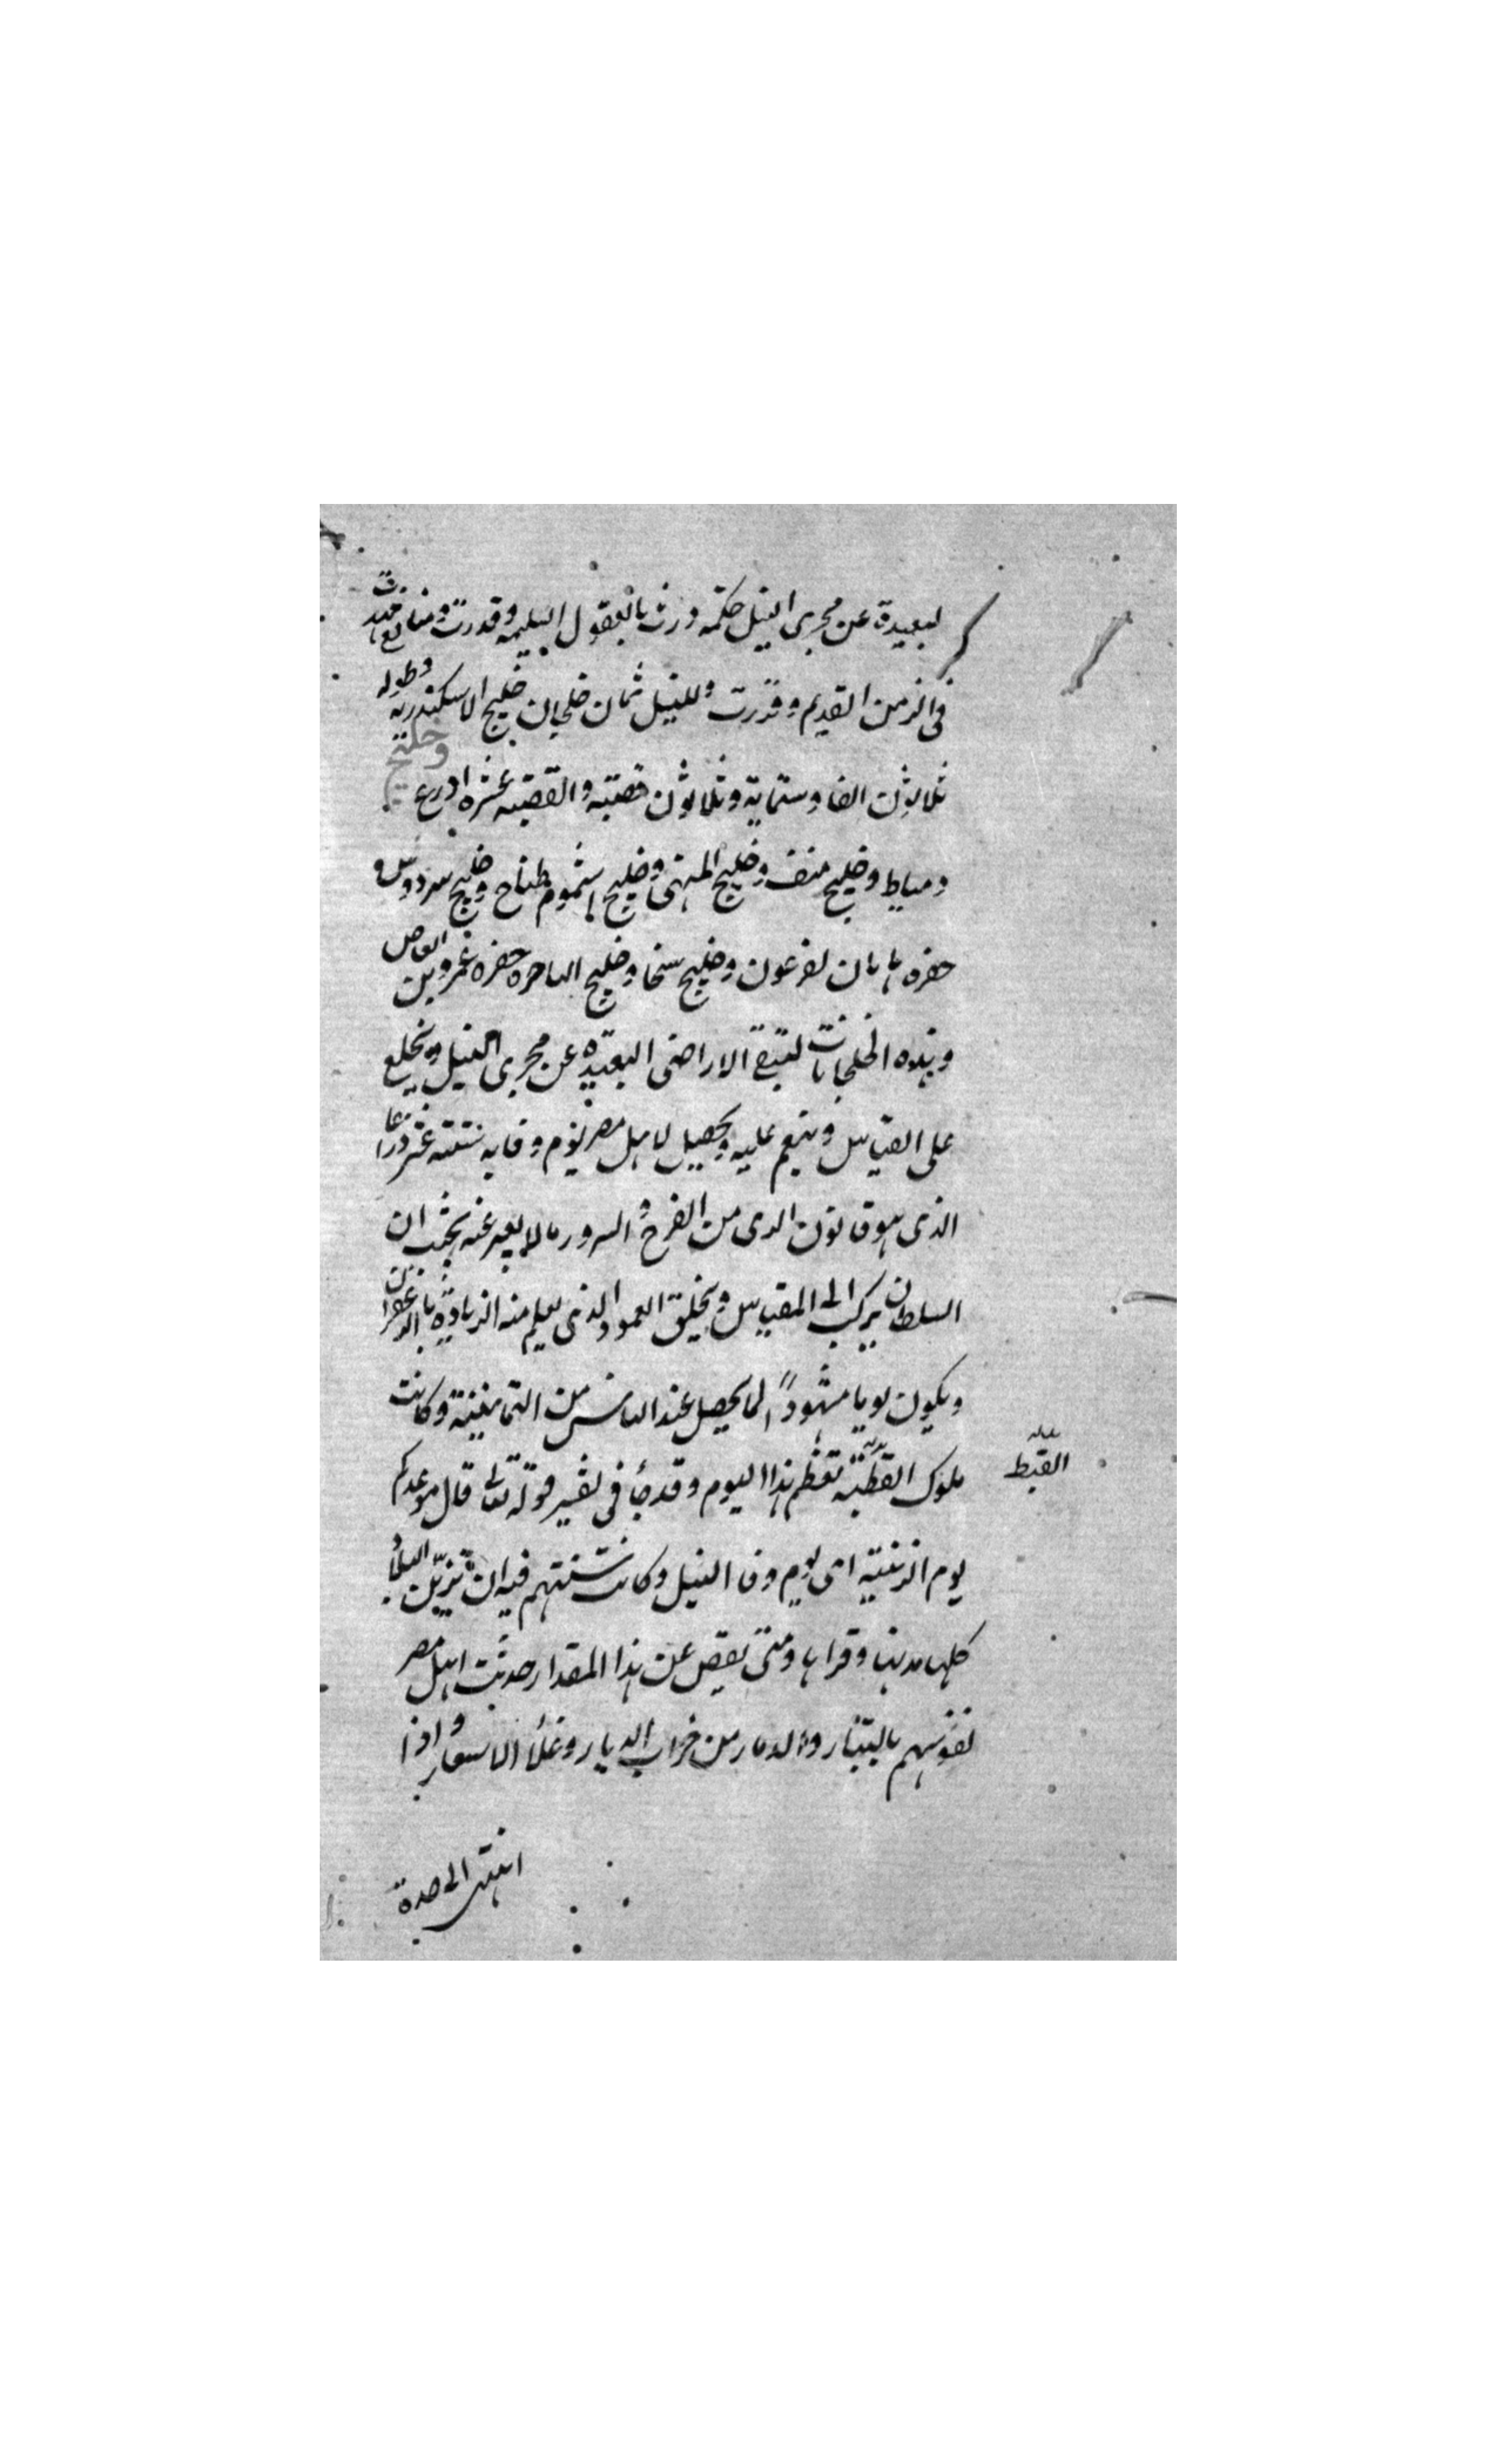 لبعيدة عن مجرى النيل حكمه ورث بالعقول السليمه وقدرت ومنافع
فى الزمن القديم وقررت وللنيل ثمان خلجان خليج الاسكندرية وطوله
ثلاثون الفا وستماية وثلاثون قصبة والقصبه عشره اذرع وخليج
دمياط وخليج منف وخليج المنهى وخليج اشموم طناح وخليج سردوس و
حفره هامان لفرعون وخليج سخا وخليج القاهره حفره عمرو بن العاص
وهذه الخلجانات لتسقى الاراضى البعيده عن مجرى النيل ويخلع
على القياس وينعم عليه ويحصل لاهل مصر يوم وفايه ستة عشر ذراعا
الذى هو قانون الرى من الفرح و السرور مالا يعبر عنه بحيث ان
السلطان يركب الى المقياس ويخلق العمود الذى يعلم منه الزيادة بالزعفران
ويكون يوما مشهودًا لما يحصل عند الناس من الطمانينة وكانت
ملوك القبطيه تعظم هذا اليوم وقد جا فى تفسير قوله تعالى قال موعدكم
القبط
يوم الزينة اى يوم وفا النيل وكانت سنتهم فيه ان تزين البلاد
كلها مدنها وقراها ومتى نقص عن هذا المقدار حدثت اهل مصر
نفوسهم بالتبار والدمار من خراب الديار وغلاء الاسعار و اذا
انتهى الى حده